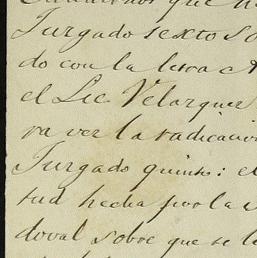 que
Jurgado sexto so
do con la letra A
el Lic. Velazquez
ra ver la radicacion
Jurgado quinto: el
tud hecha por la
doval sobre que se le